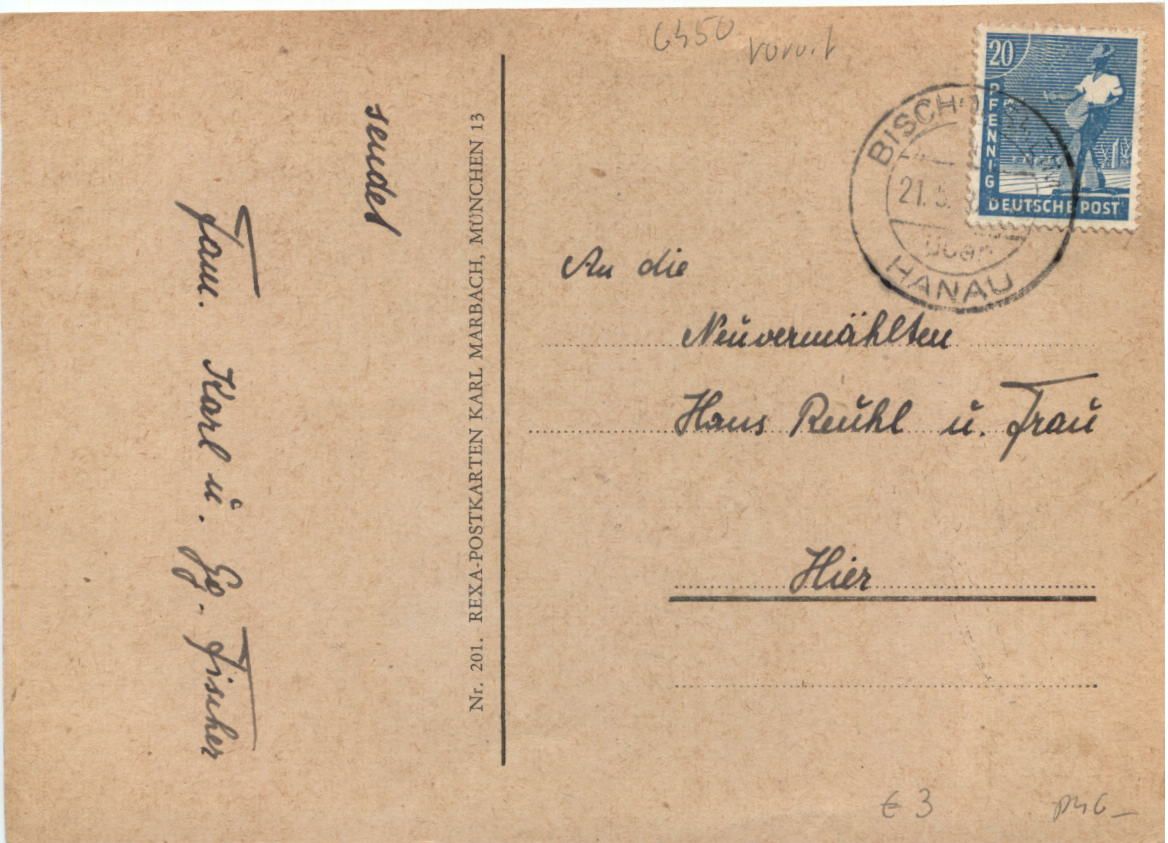 sendet
Fam. Karl u. Gg. Fischer
Nr. 201. REXA-POSTKARTEN KARL MARBACH, MÜNCHEN 13
6450
20
PFENNIG
DEUTSCHE POST
21. 5.
über
HANAU
An die
Neuvermählten
Hans Reuhl u. Frau
Hier
€ 3